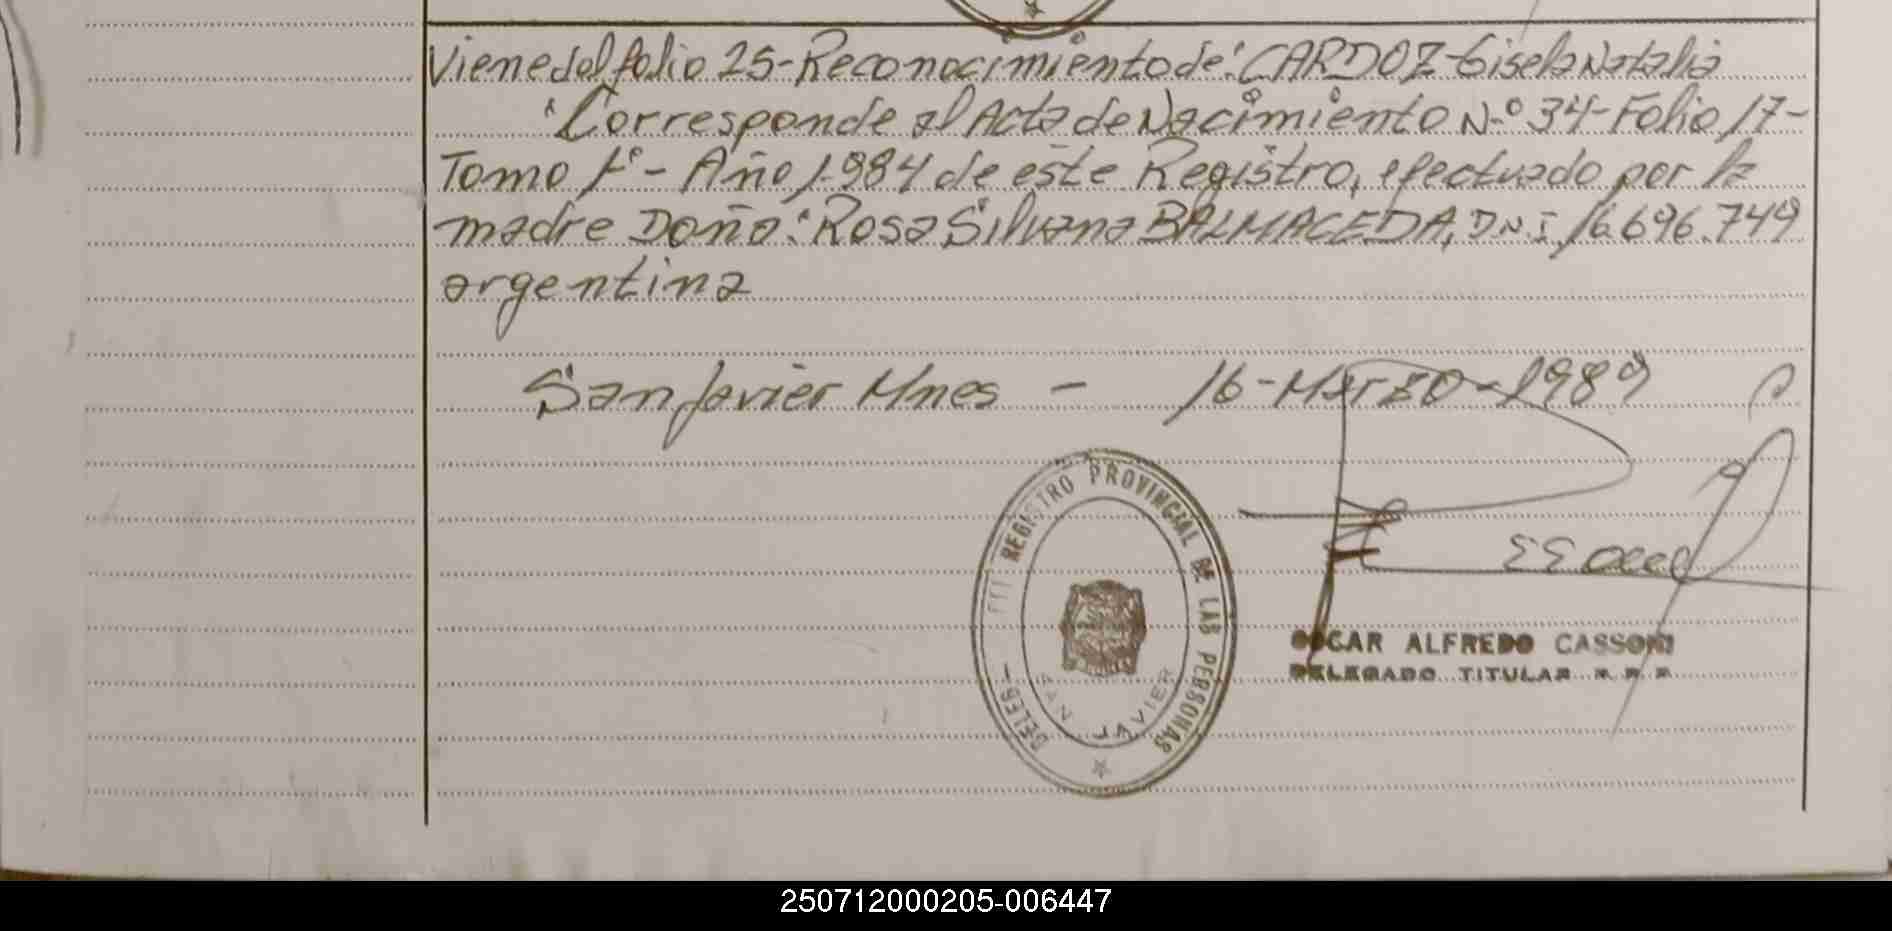 Viene del folio 25-Reconocimiento de: CARDOZ-Gisela Natalia
Corresponde al Acta de Nacimiento N.º 34-Folio 17-
Tomo 1º - Año 1984 de este Registro, efectuado por la
madre Doña: Rosa Silvana BALMACEDA, D.N.I. 16.696.749
argentina
San Javier Mnes - 16-Marzo-1989
DELEG- REGISTRO PROVINCIAL DE LAS PERSONAS
SAN JAVIER
OSCAR ALFREDO CASSONI
DELEGADO TITULAR R.P.P.
250712000205-006447